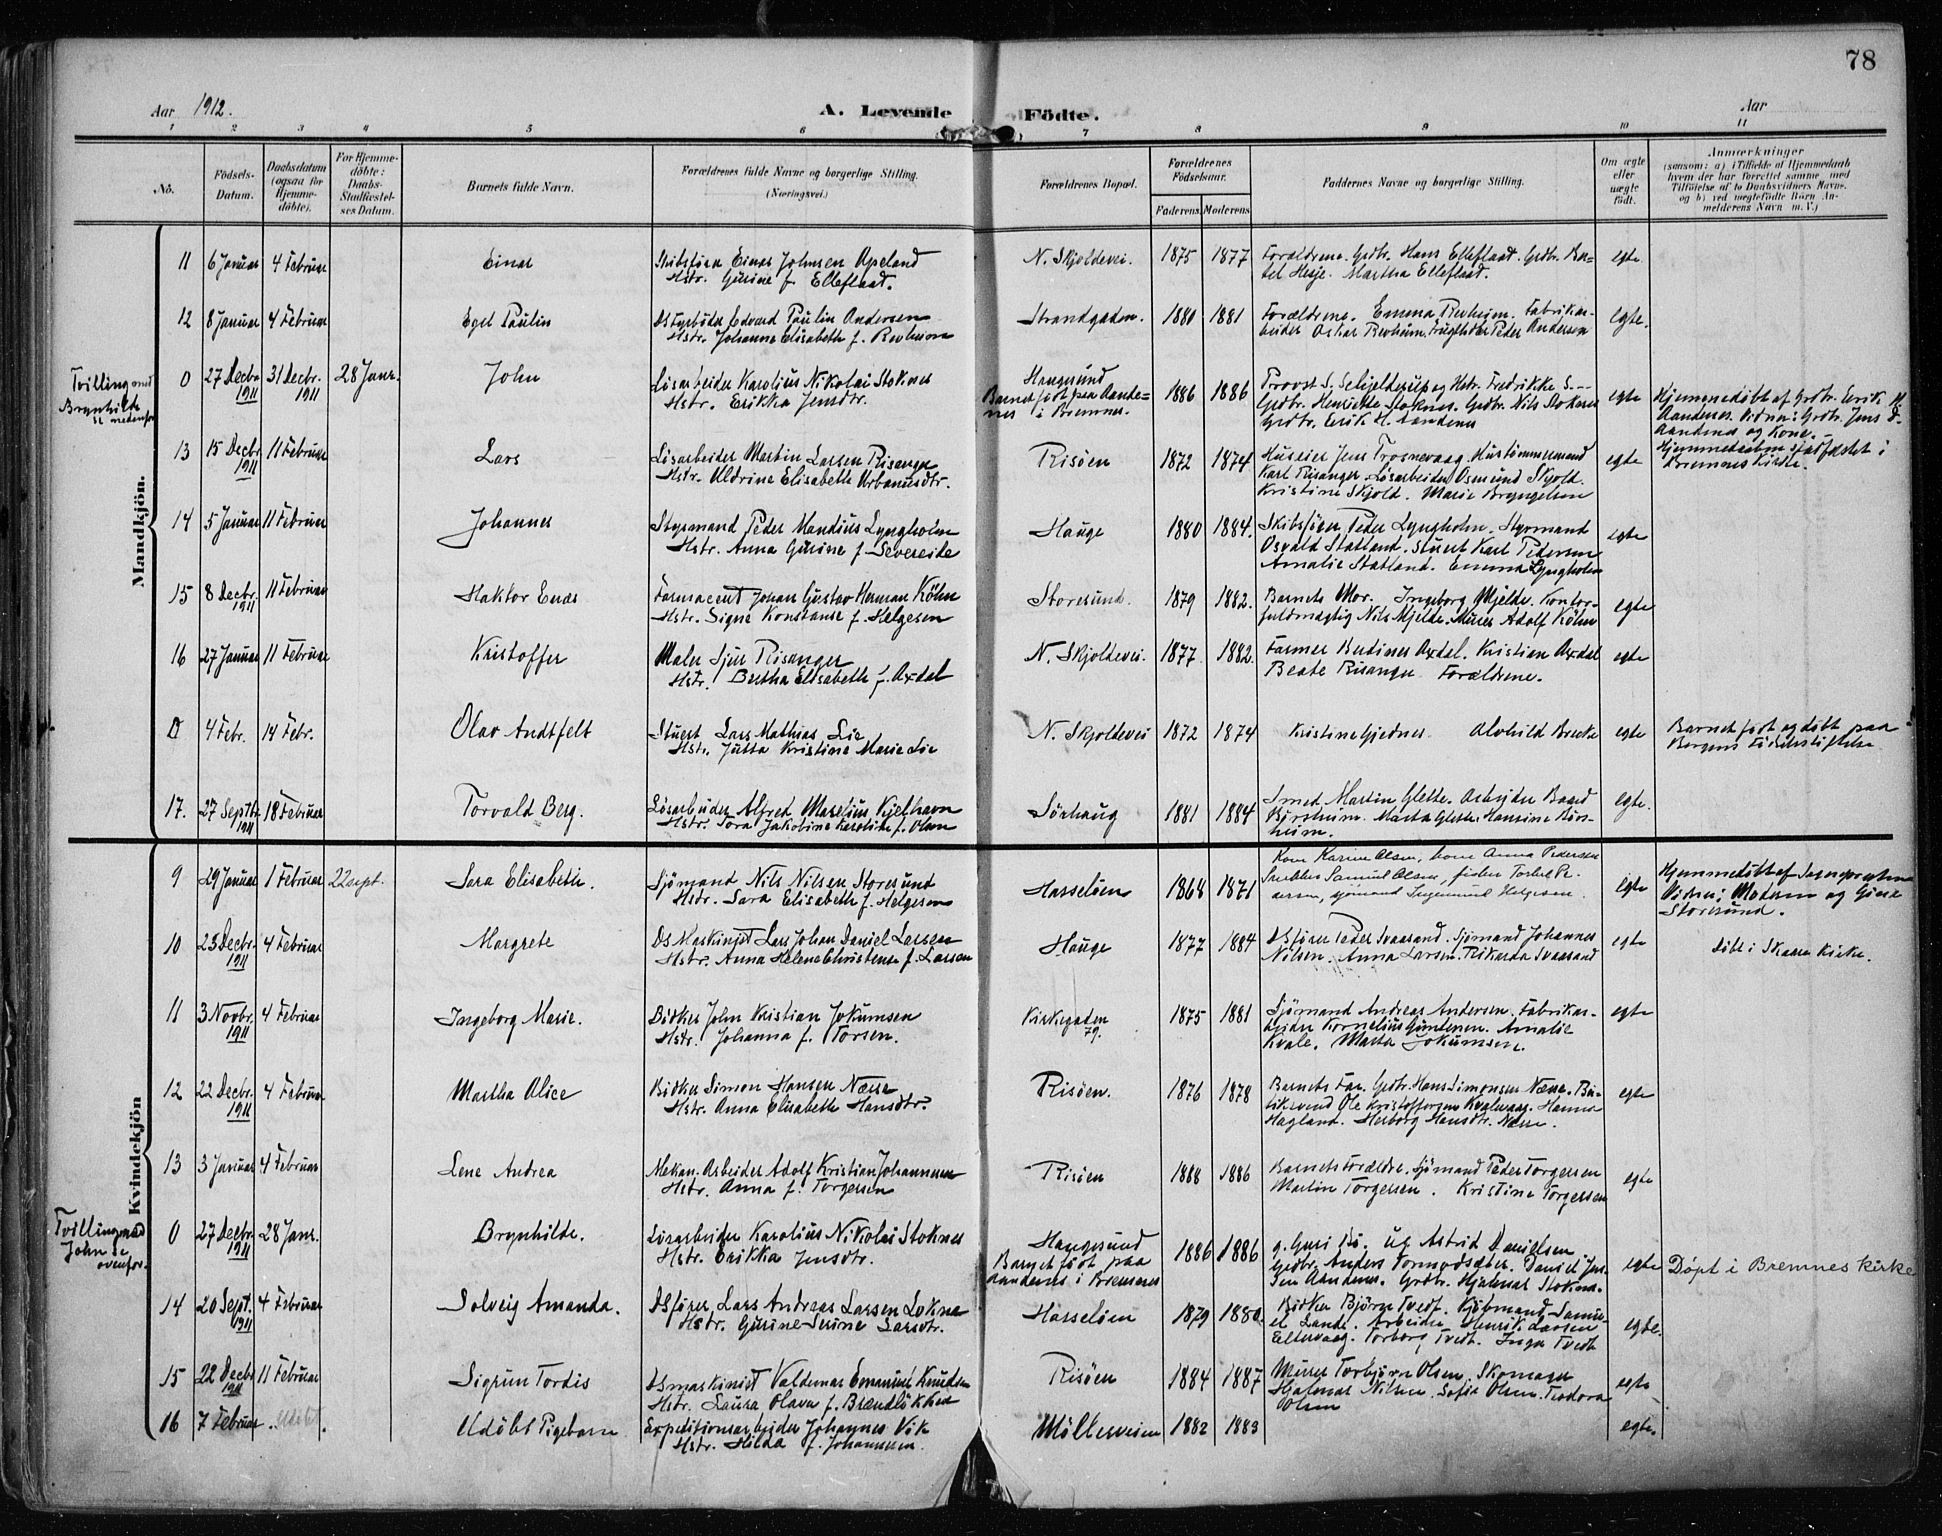 78
Aar 1912.
A. Levende Födte.
Aar
1 2 3 4 5 6 7 8 9 10 11
No.
Födsels-Datum.
Daabsdatum (ogsaa for Hjemme-döbte).
For Hjemme-döbte: Daabs-Stadfæstel-ses Datum.
Barnets fulde Navn.
Forældrenes fulde Navne og borgerlige Stilling.
(Næringsvei.)
Forældrenes Bopæl.
Forældrenes Födselsaar.
Faderens. Moderens.
Faddernes Navne og borgerlige Stilling.
Om ægte eller uægte födt.
Anmærkninger
(saasom: a) i Tilfælde af Hjemmedaab
hvem der har forrettet samme, med
Tilföielse af to Daabsvidners Navne,
og b) ved uegtefödte Börn An-
melderens Navn m. V.)
Mandkjön.
11 6 Januar 4 Februar Einar
Skibsförer Einar Johnsen Apeland
Hstr. Gurine f. Elleflaat.
N. Skjoldevei. 1875 1877
Forældrene. Grdbr. Hans Elleflaat. Grdbr.
Hesje. Martha Elleflaat.
egte
12 8 Januar 4 Februar Egel Paulin
Edvard Paulin Andersen
Hstr. Johanne Elisabeth f. Revheim
Strandgaden. 1880 1881
Forældrene. Emma Revheim. Fabrikar-
beider Oskar Revheim. Peder Andersen
egte.
Tvilling med
Brynhilde
se nedenfor
0 27 Decbr 1911 31 Decbr. 1911 28 Janr. John
Lösarbeider Karolius Nikolai Stoknes
Hstr. Erikka Jensdtr.
Haugesund
Barnet födt paa Aande-
nes i Bremnes.
1886 1886
Provst S. Schjelderup og Hstr. Fredrikke S.--
Grdbr. Henriette Stoknes. Grdbr. Nils Stoknes
Grdbr. Erik H. Aandenes
egte
Hjemmedöbt af Grdbr. Erik H.
Aandenes. Vidner: Grdbr. Jens D.
Aandenes og Kone.
Hjemmedaaben stadfæstet i
Bremnes Kirke.
13 15 Decbr 1911 11 Februar Lars
Lösarbeider Martin Larsen Risanger
Hstr. Aldrine Elisabeth Urbanusdtr.
Risöen 1872 1874
Huseier Jens Trosnevaag. Hustömmermand
Karl Risanger. Lösarbeider Osmund Skjold.
Kristine Skjold. Marie Bryngelsen
egte
14 5 Januar 11 Februar Johannes
Styrmand Peder Mandius Lyngholm
Hstr. Anna Gurine f. Severeide
Hauge 1880 1884.
Skibsförer Peder Lyngholm. Styrmand
Osvald Statland. Stuert Karl Pedersen
Amalie Statland. Emma Lyngholm
egte
15 8 Decbr. 1911 11 Februar Haktor Enas
Farmaceut Johan Gustav Herman Köhn
Hstr. Signe Konstanse f. Helgesen
Storesund. 1879 1882.
Barnets Mor. Ingeborg Mjelde. Kontor-
fuldmægtig Nils Mjelde. Murer Adolf Köhn
egte
16 27 Januar 11 Februar Kristoffer
Maler Sjur Risanger
Hstr. Bertha Elisabeth f. Axdal
N. Skjoldevei. 1877 1882.
Farmer Berdines Axdal. Kristian Axdal
Beate Risanger Forældrene.
egte
0 4 Febr. 14 Febr. Olav Andtfelt
Stuert Lars Mathias Lie
Hstr. Jutta Kristine Marie Lie
N. Skjoldevei 1872 1874
Kristine Gjednes Alvhild Brecke
egte
Barnet födt og döbt paa
Bergens Födselsstiftelse
17. 27 Septbr 1911 18 Februar Torvald Berg.
Lösarbeider Alfred Maselius Kjelhavn
Hstr. Tora Jakobine Karoline f. Olsen
Sörhaug 1881 1884
Smed Martin Glette. Arbeider Baard
Björsheim. Marta Glette. Hansine Björs-
heim.
egte.
Kvindekjön
9 29 Januar 1 Februar 22 sept. Sara Elisabeth.
Sjömand Nils Nilsen Storesund
Hstr. Sara Elisabeth f. Helgesen
Hasselöen 1868 1871
Kone Karine Olsen, kone Anna Pedersen
Snekker Samuel Olsen, fisker Torkel Pe-
dersen, sjömand Ingemund Helgesen.
egte
Hjemmedöbt af Sogneprsten
Vidner: Moderen og
Storesund.
10 23 Decbr. 1911 4 Februar Margrete
DS Maskinist Lars Johan Daniel Larsen
Hstr. Anna Helene Christense f. Larsen
Hauge 1877 1884
DSförer Peder Svaasand. Sjömand Johannes
Nilsen. Anna Larsen. Rikarda Svaasand
egte
Döbt i Skaare Kirke.
11 3 Novbr. 1911 4 Februar Ingeborg Marie.
Bödker John Kristian Jokumsen
Hstr. Johanna f. Torsen.
Kirkegaden
79.
1875 1881
Sjömand Andreas Andersen. Fabrikar-
beider Kornelius Guntersen. Amalie
Kvale. Marta Jokumsen.
egte
12 22 Decbr. 1911 4 Februar Martha Alice
Bödker Simon Hansen Næsse
Hstr. Anna Elisabeth Hansdtr.
Risöen. 1876 1878
Barnets Far. Grdbr. Hans Simonsen Næsse. Bu-
tiksvend Ole Kristoffersen Kvalevaag. Hanna
Hagland. Herborg Hansdtr. Næsse.
egte
13 3 Januar 4 Februar Lene Andrea
Mekan. Arbeider Adolf Kristian Johannesen
Hstr. Anna f. Torgersen
Risöen 1888 1886
Barnets Forældre. Sjömand Peder Torgersen
Martin Torgersen. Kristine Torgersen
egte
Tvilling med
John se
ovenfor.
0 27 Decbr. 1911 28 Janr. Brynhilde.
Lösarbeider Karolius Nikolai Stoknes
Hstr. Erikka Jensdtr.
Haugesund
Barnet födt paa
Aandenes i Bremnes
1886 1886
g. Guri Bö. Ug Astrid Danielsen
Grdbr. Anders Tormodsæter. Daniel Jen-
sen Aandenes. Grdbr. Hjalmar Stoknes.
egte
Döpt i Bremnes Kirke
14 20 Sept. 1911 4 Februar Solveig Amanda.
DSförer Lars Andreas Larsen Lokna
Hstr. Gurine Serine Larsdtr.
Hasselöen 1879 1880.
Bödker Björn Tvedt. Kjöbmand Samu-
el Lande. Arbeider Henrik Larsen
Eltervaag. Torborg Tvedt. Inga Tvedt
egte.
15 22 Decbr 1911 11 Februar Sigrun Tordis
DSmaskinist Valdemar Emanuel Knudsen
Hstr. Laura Olava f. Brændlökken
Risöen 1884 1887
Murer Torbjörn Olsen. Skomager
Hjalmar Nilsen. Sofie Olsen. Teodora
Olsen
egte
16 7 Februar. Udöbt. Udöbt Pigebarn
Expeditionsarbeider Johannes Vik
Hstr. Hilda f. Johannesen.
Möllerveien 1882 1883
egte.